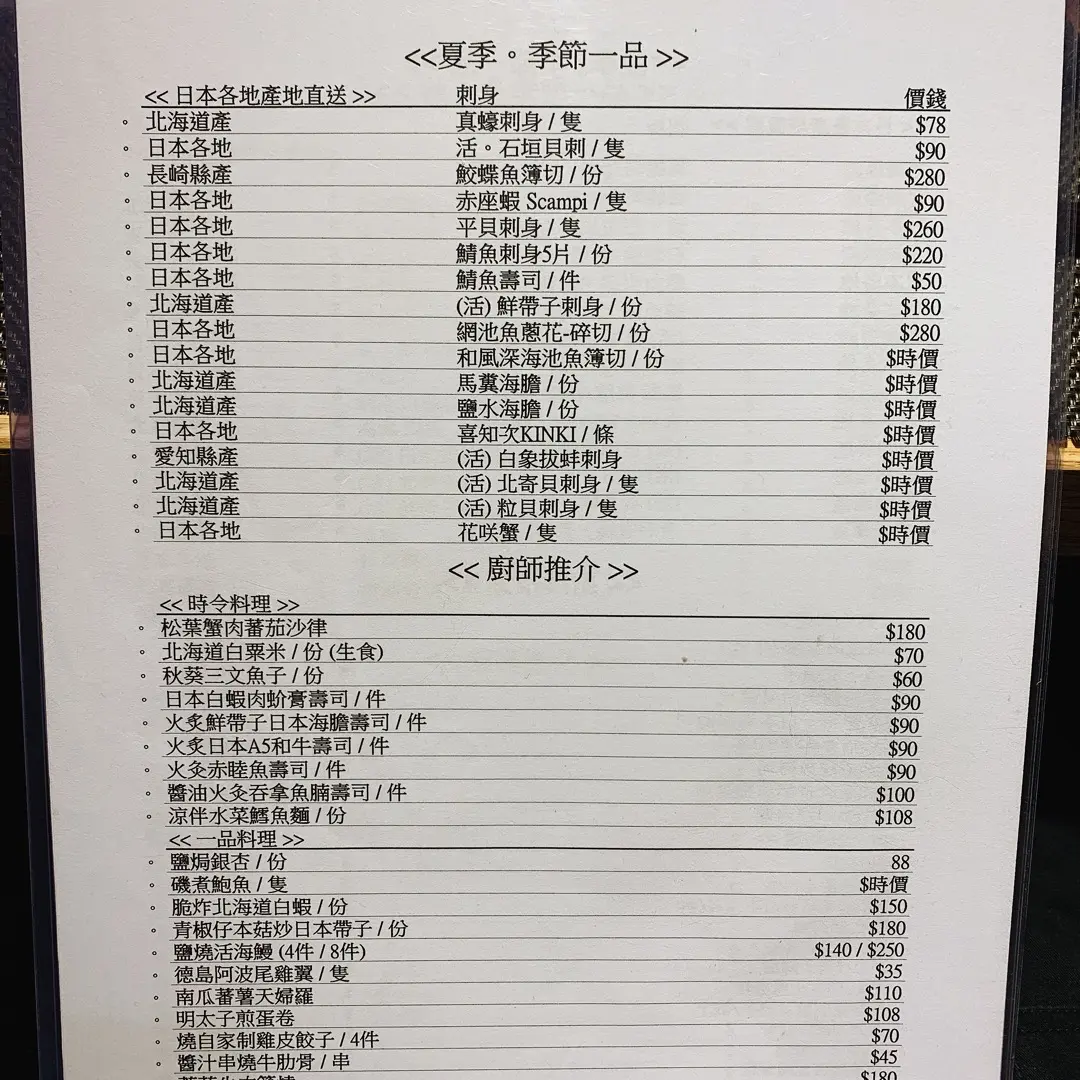 <<夏季。季節一品 >>
<< 日本各地產地直送 >> 刺身 價錢
。 北海道產 真蠔刺身 / 隻 $78
。 日本各地 活。石垣貝刺 / 隻 $90
。 長崎縣產 鮫蝶魚簿切 / 份 $280
。 日本各地 赤座蝦 Scampi / 隻 $90
。 日本各地 平貝刺身 / 隻 $260
。 日本各地 鯖魚刺身5片 / 份 $220
。 日本各地 鯖魚壽司 / 件 $50
。 北海道產 (活) 鮮帶子刺身 / 份 $180
。 日本各地 網池魚蔥花-碎切 / 份 $280
。 日本各地 和風深海池魚簿切 / 份 $時價
。 北海道產 馬糞海膽 / 份 $時價
。 北海道產 鹽水海膽 / 份 $時價
。 日本各地 喜知次KINKI / 條 $時價
。 愛知縣產 (活) 白象拔蚌刺身 $時價
。 北海道產 (活) 北寄貝刺身 / 隻 $時價
。 北海道產 (活) 粒貝刺身 / 隻 $時價
。 日本各地 花咲蟹 / 隻 $時價
<< 廚師推介 >>
<< 時令料理 >>
。 松葉蟹肉蕃茄沙律 $180
。 北海道白粟米 / 份 (生食) $70
。 秋葵三文魚子 / 份 $60
。 日本白蝦肉蚧膏壽司 / 件 $90
。 火炙鮮帶子日本海膽壽司 / 件 $90
。 火炙日本A5和牛壽司 / 件 $90
。 火灸赤睦魚壽司 / 件 $90
。 醬油火灸吞拿魚腩壽司 / 件 $100
。 涼伴水菜鱈魚麵 / 份 $108
<< 一品料理 >>
。 鹽焗銀杏 / 份 88
。 磯煮鮑魚 / 隻 $時價
。 脆炸北海道白蝦 / 份 $150
。 青椒仔本菇炒日本帶子 / 份 $180
。 鹽燒活海鰻 (4件 / 8件) $140 / $250
。 德島阿波尾雞翼 / 隻 $35
。 南瓜蕃薯天婦羅 $110
。 明太子煎蛋卷 $108
。 燒自家制雞皮餃子 / 4件 $70
。 醬汁串燒牛肋骨 / 串 $45
$180